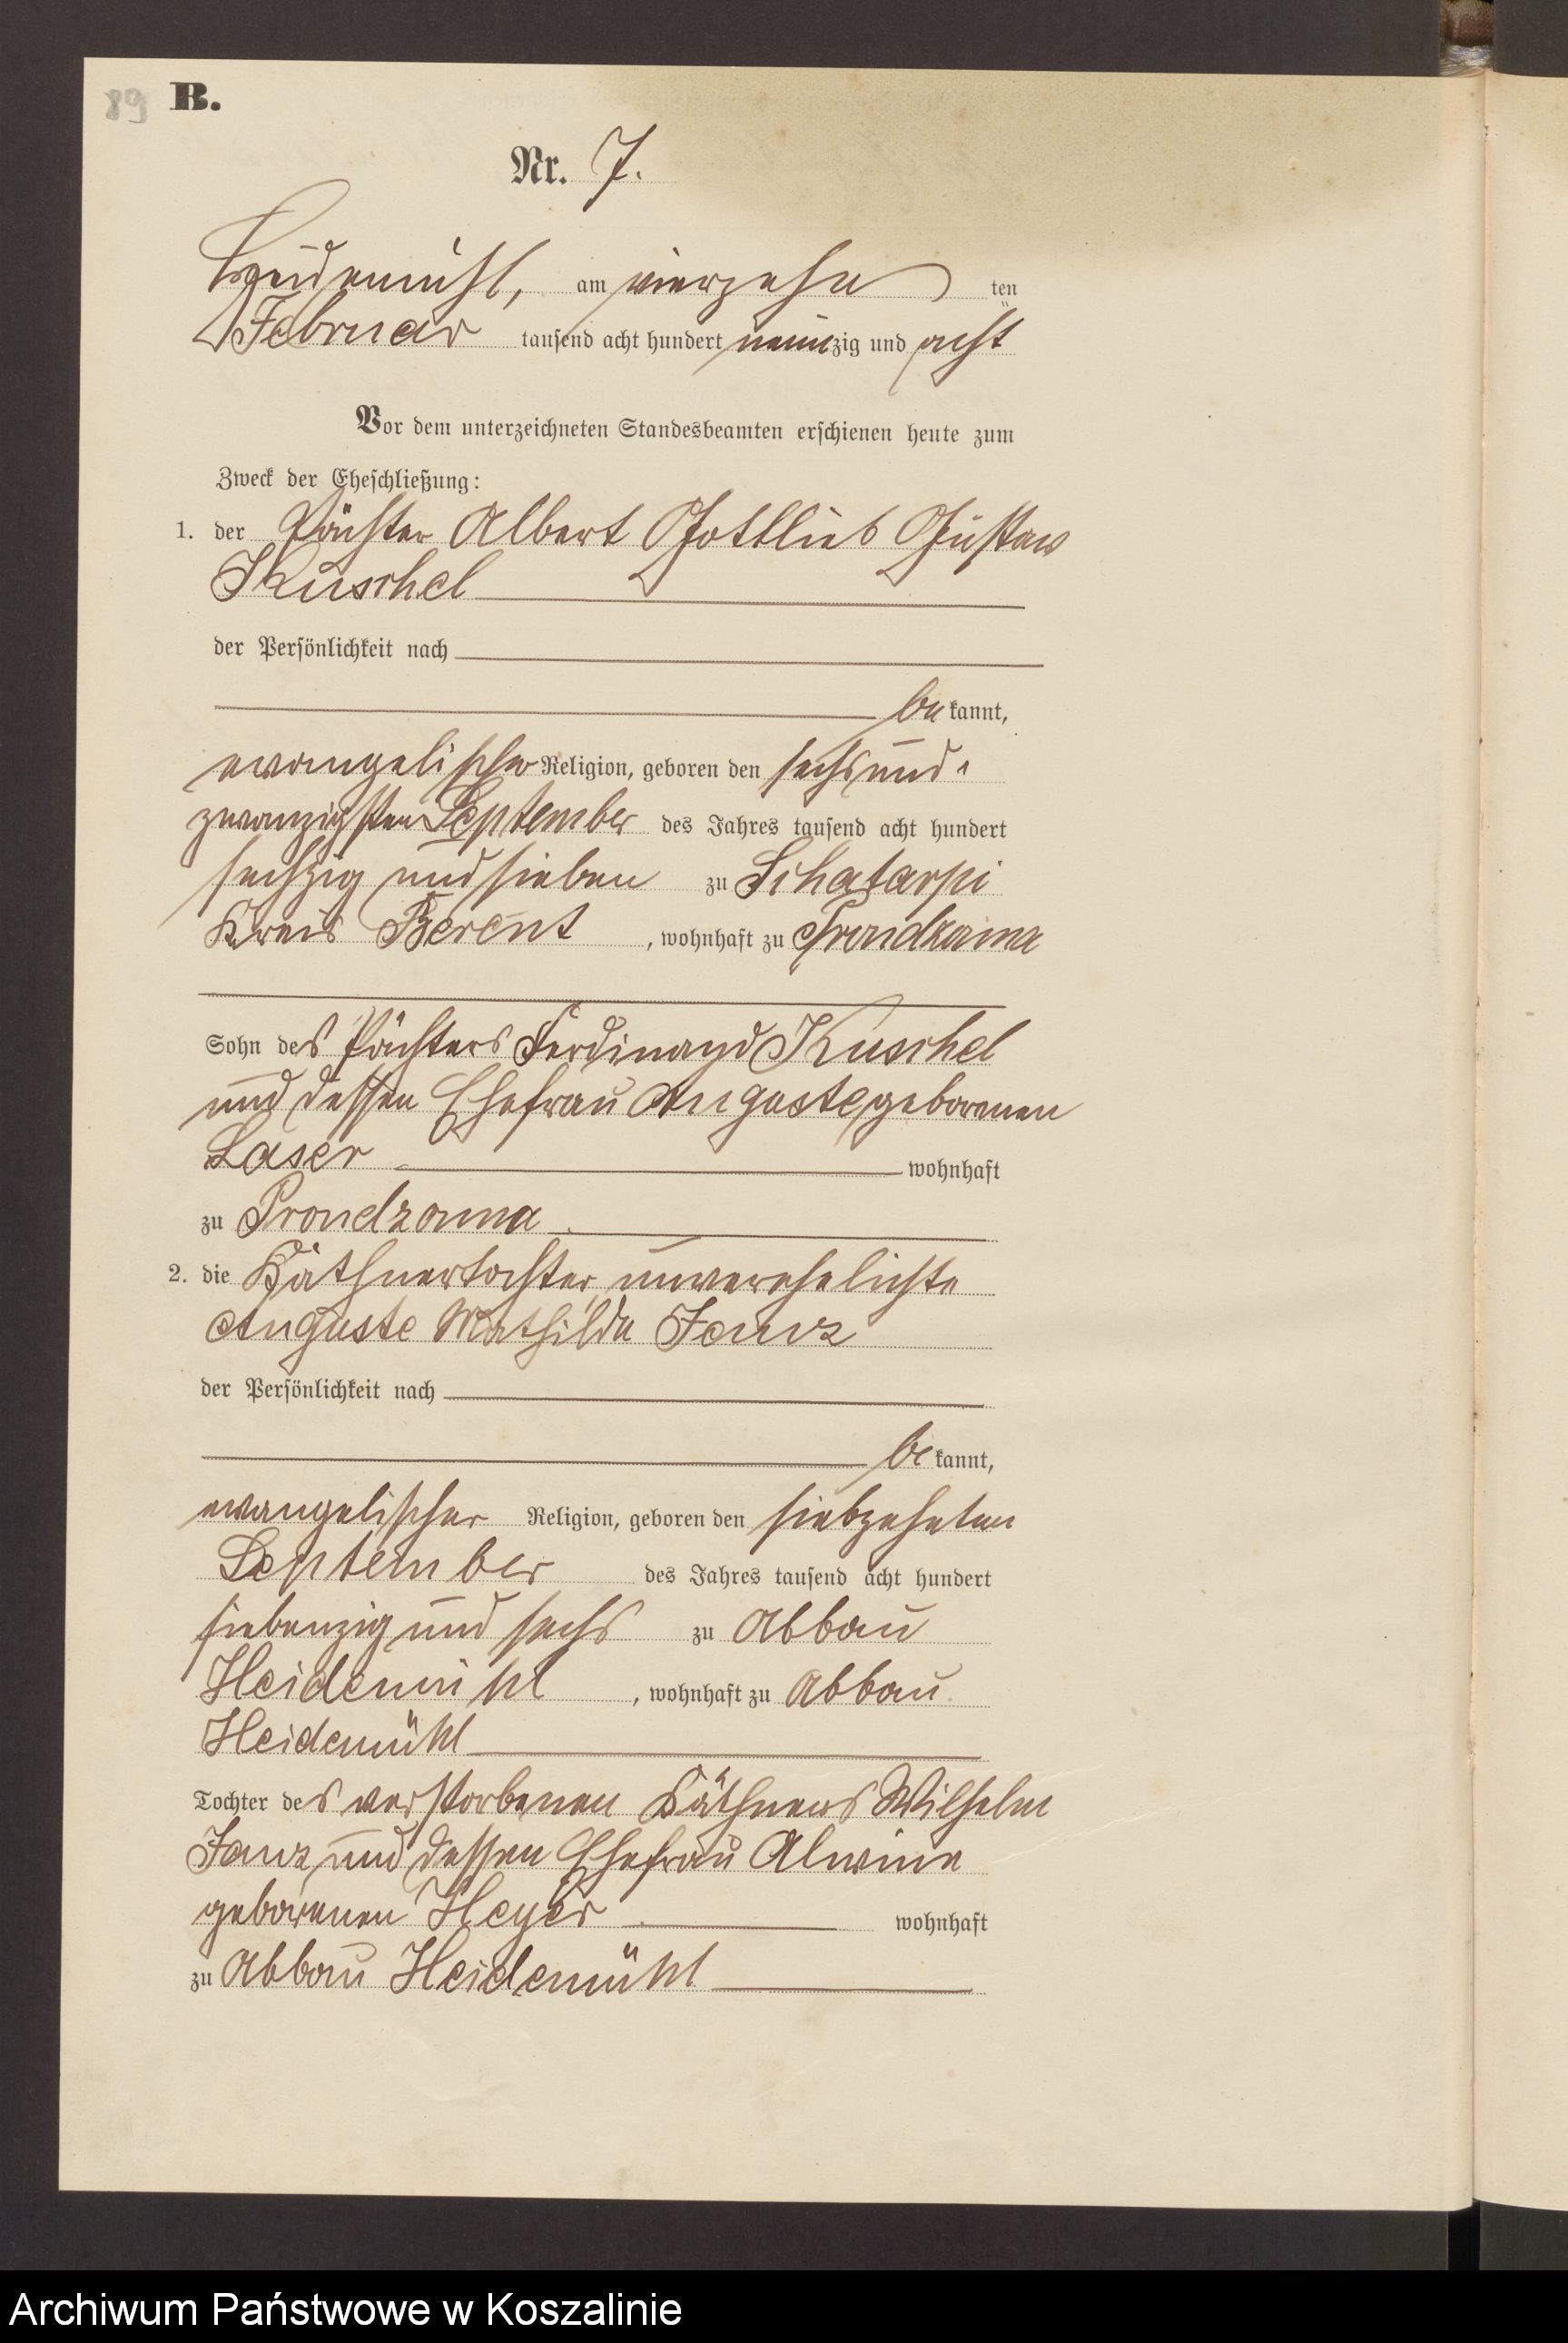 89 B.
Nr. 7.
Heidemühl, am vierzehn ten
Februar tausend acht hundert neunzig und acht
Vor dem unterzeichneten Standesbeamten erschienen heute zum
Zweck der Eheschließung:
1. der Pächter Albert Gottlieb Gustav
Kuschel
der Persönlichkeit nach
be kannt,
evangelischer Religion, geboren den sechsund-
zwanzigsten September des Jahres tausend acht hundert
sechzig und sieben zu Schatarpi
Kreis Berent, wohnhaft zu
Sohn des Pächters Ferdinand Kuschel
und dessen Ehefrau Auguste geborenen
Laser wohnhaft
zu Prondzonna
2. die Käthnertochter, unverehelichte
Auguste Mathilde
der Persönlichkeit nach
be kannt,
evangelischer Religion, geboren den siebzehnten
September des Jahres tausend acht hundert
siebenzig und sechs zu Abbau
Heidemühl, wohnhaft zu Abbau
Heidemühl
Tochter des verstorbenen Käthners Wilhelm
und dessen Ehefrau Alwine
geborenen Heyer wohnhaft
zu Abbau Heidemühl
Archiwum Państwowe w Koszalinie